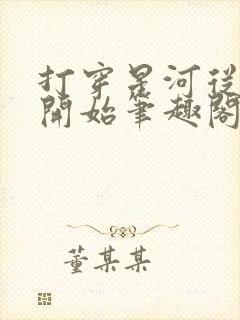 打穿星河從
開始筆趣閣
董某某